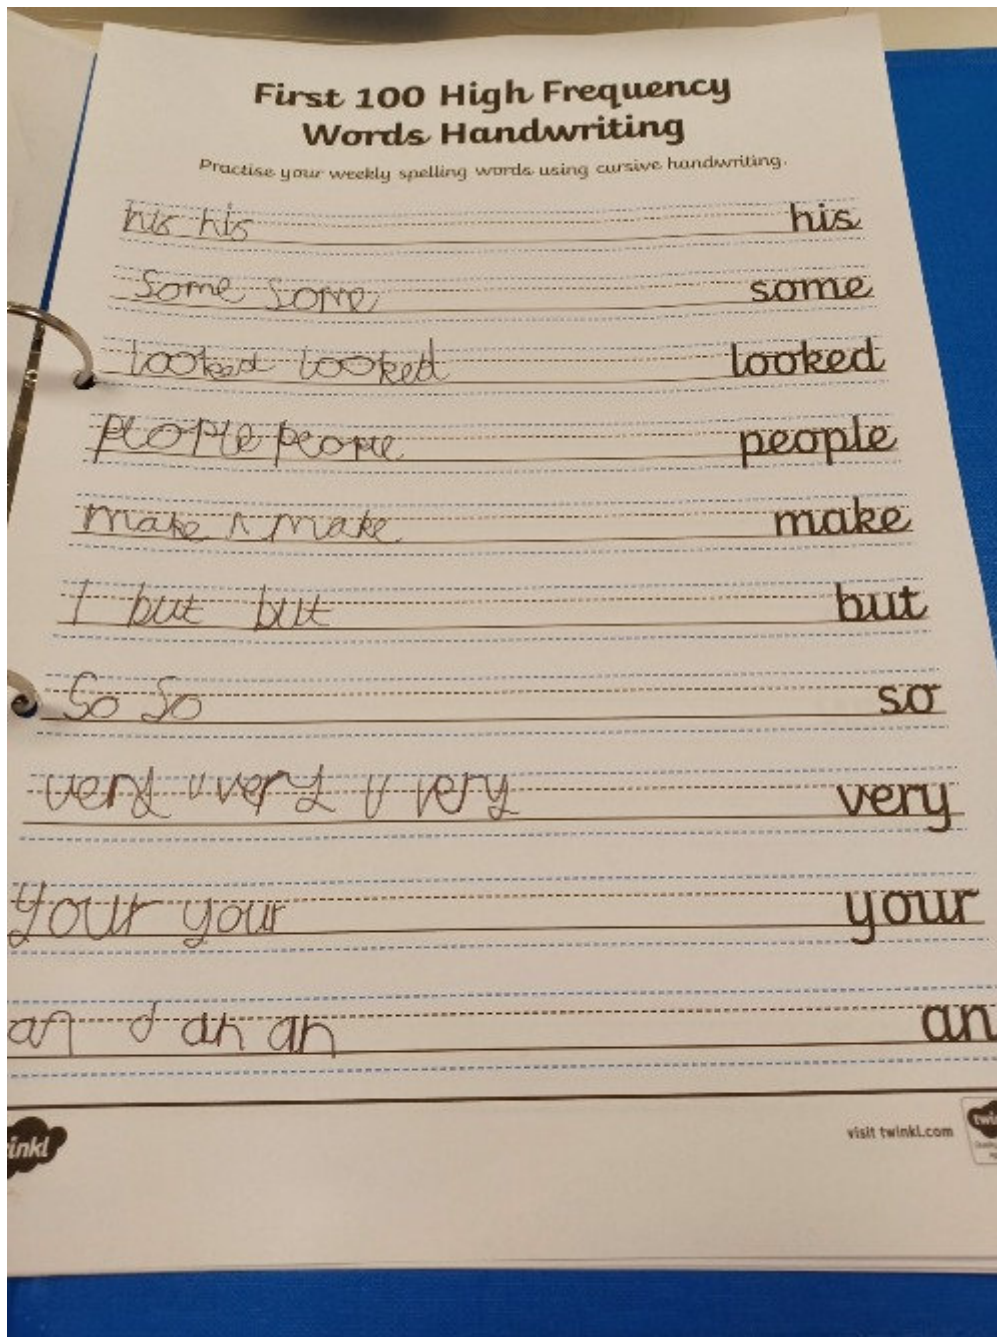 First 100 High Frequency
Words Handwriting
Practise your weekly spelling words using cursive handwriting.
his his his
some some some
looked looked looked
people people people
make n make make
l but but but
so so so
very v very v very very
your your your
an d an an an
inkl visit twinkl.com twi